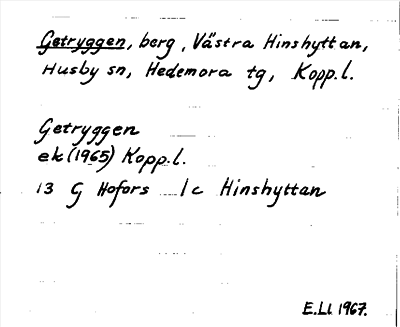 Getryggen, berg, Västra Hinshyttan,
Husby sn, Hedemora tg, Kopp.l.
Getryggen
ek (1965) Kopp.l.
13 G Hofors 1c Hinshyttan
E.Ll. 1967.